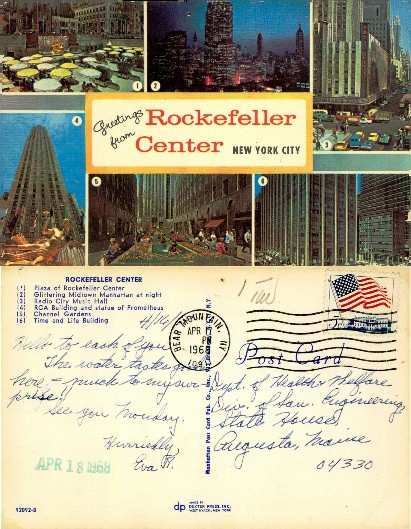 1
2
3
4
5
6
Greetings from
Rockefeller
Center NEW YORK CITY
ROCKEFELLER CENTER
(1) Plaza of Rockefeller Center
(2) Glittering Midtown Manhattan at night
(3) Radio City Music Hall
(4) RCA Building and statue of Prometheus
(5) Channel Gardens
(6) Time and Life Building
4/16/
Hello to each of you
The water tastes
here - much to my sur-
prise.
See you Monday.
Hurriedly,
Eva R.
APR 18 1968
92092-B
BEAR MOUNTAIN, NY
APR 17
PM
1968
Post Card
Dept. of Health & Welfare
Div. of San. Engineering
State House
Augusta, Maine
04330
Manhattan Post Card Pub. Co., Inc.
dp
MADE BY
DEXTER PRESS, INC.
WEST NYACK, NEW YORK